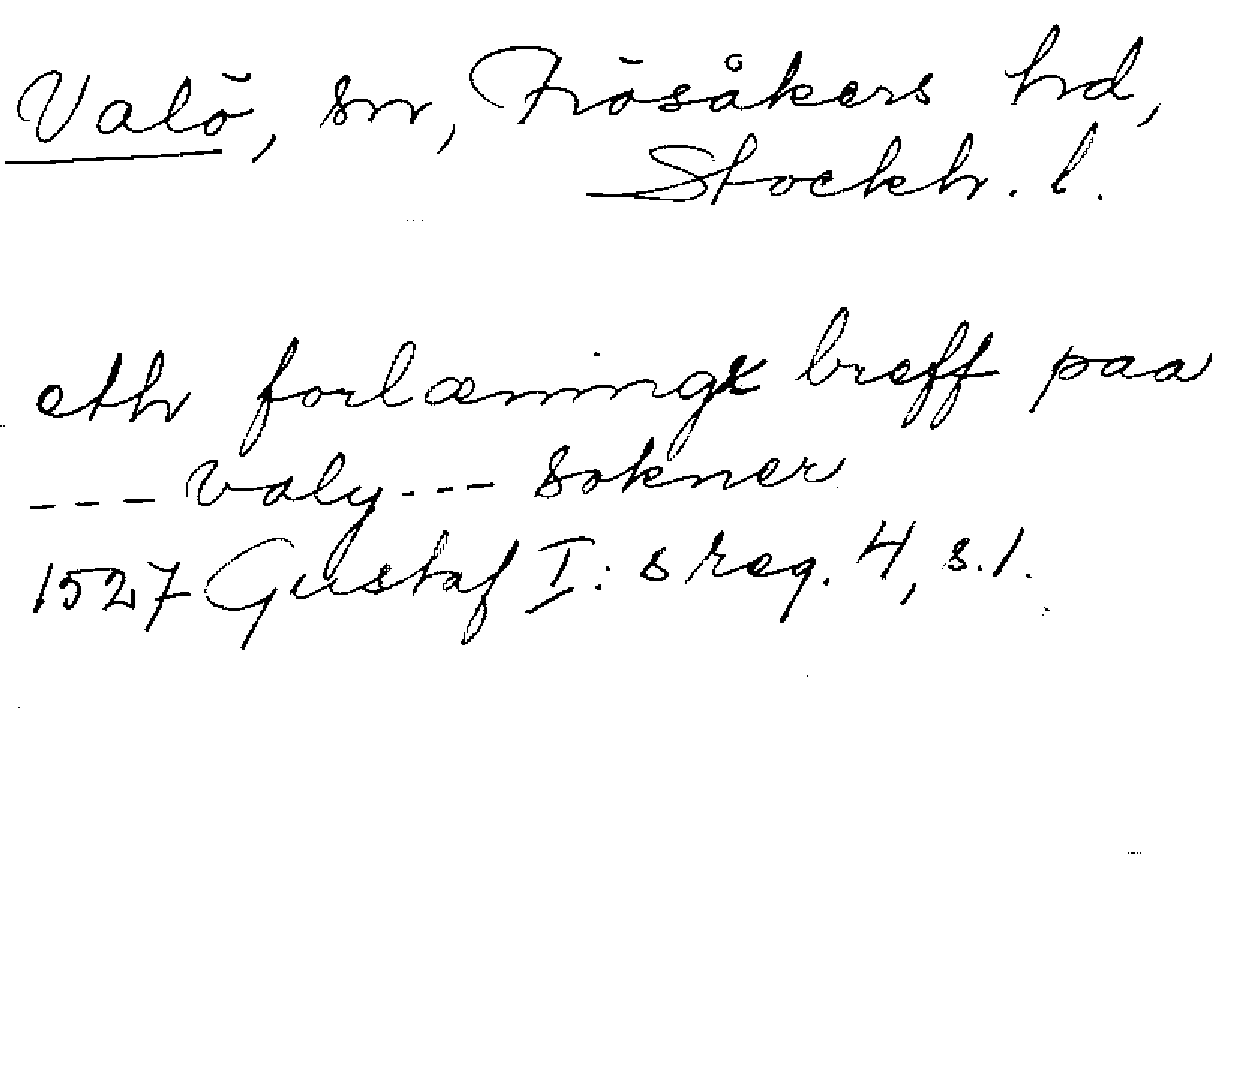 Valö, sn, Frösåkers hd,
Stockh. l.
eth forlæningx breff paa
--- valy --- sokner
1527 Gustaf I:s reg. 4, s.1.